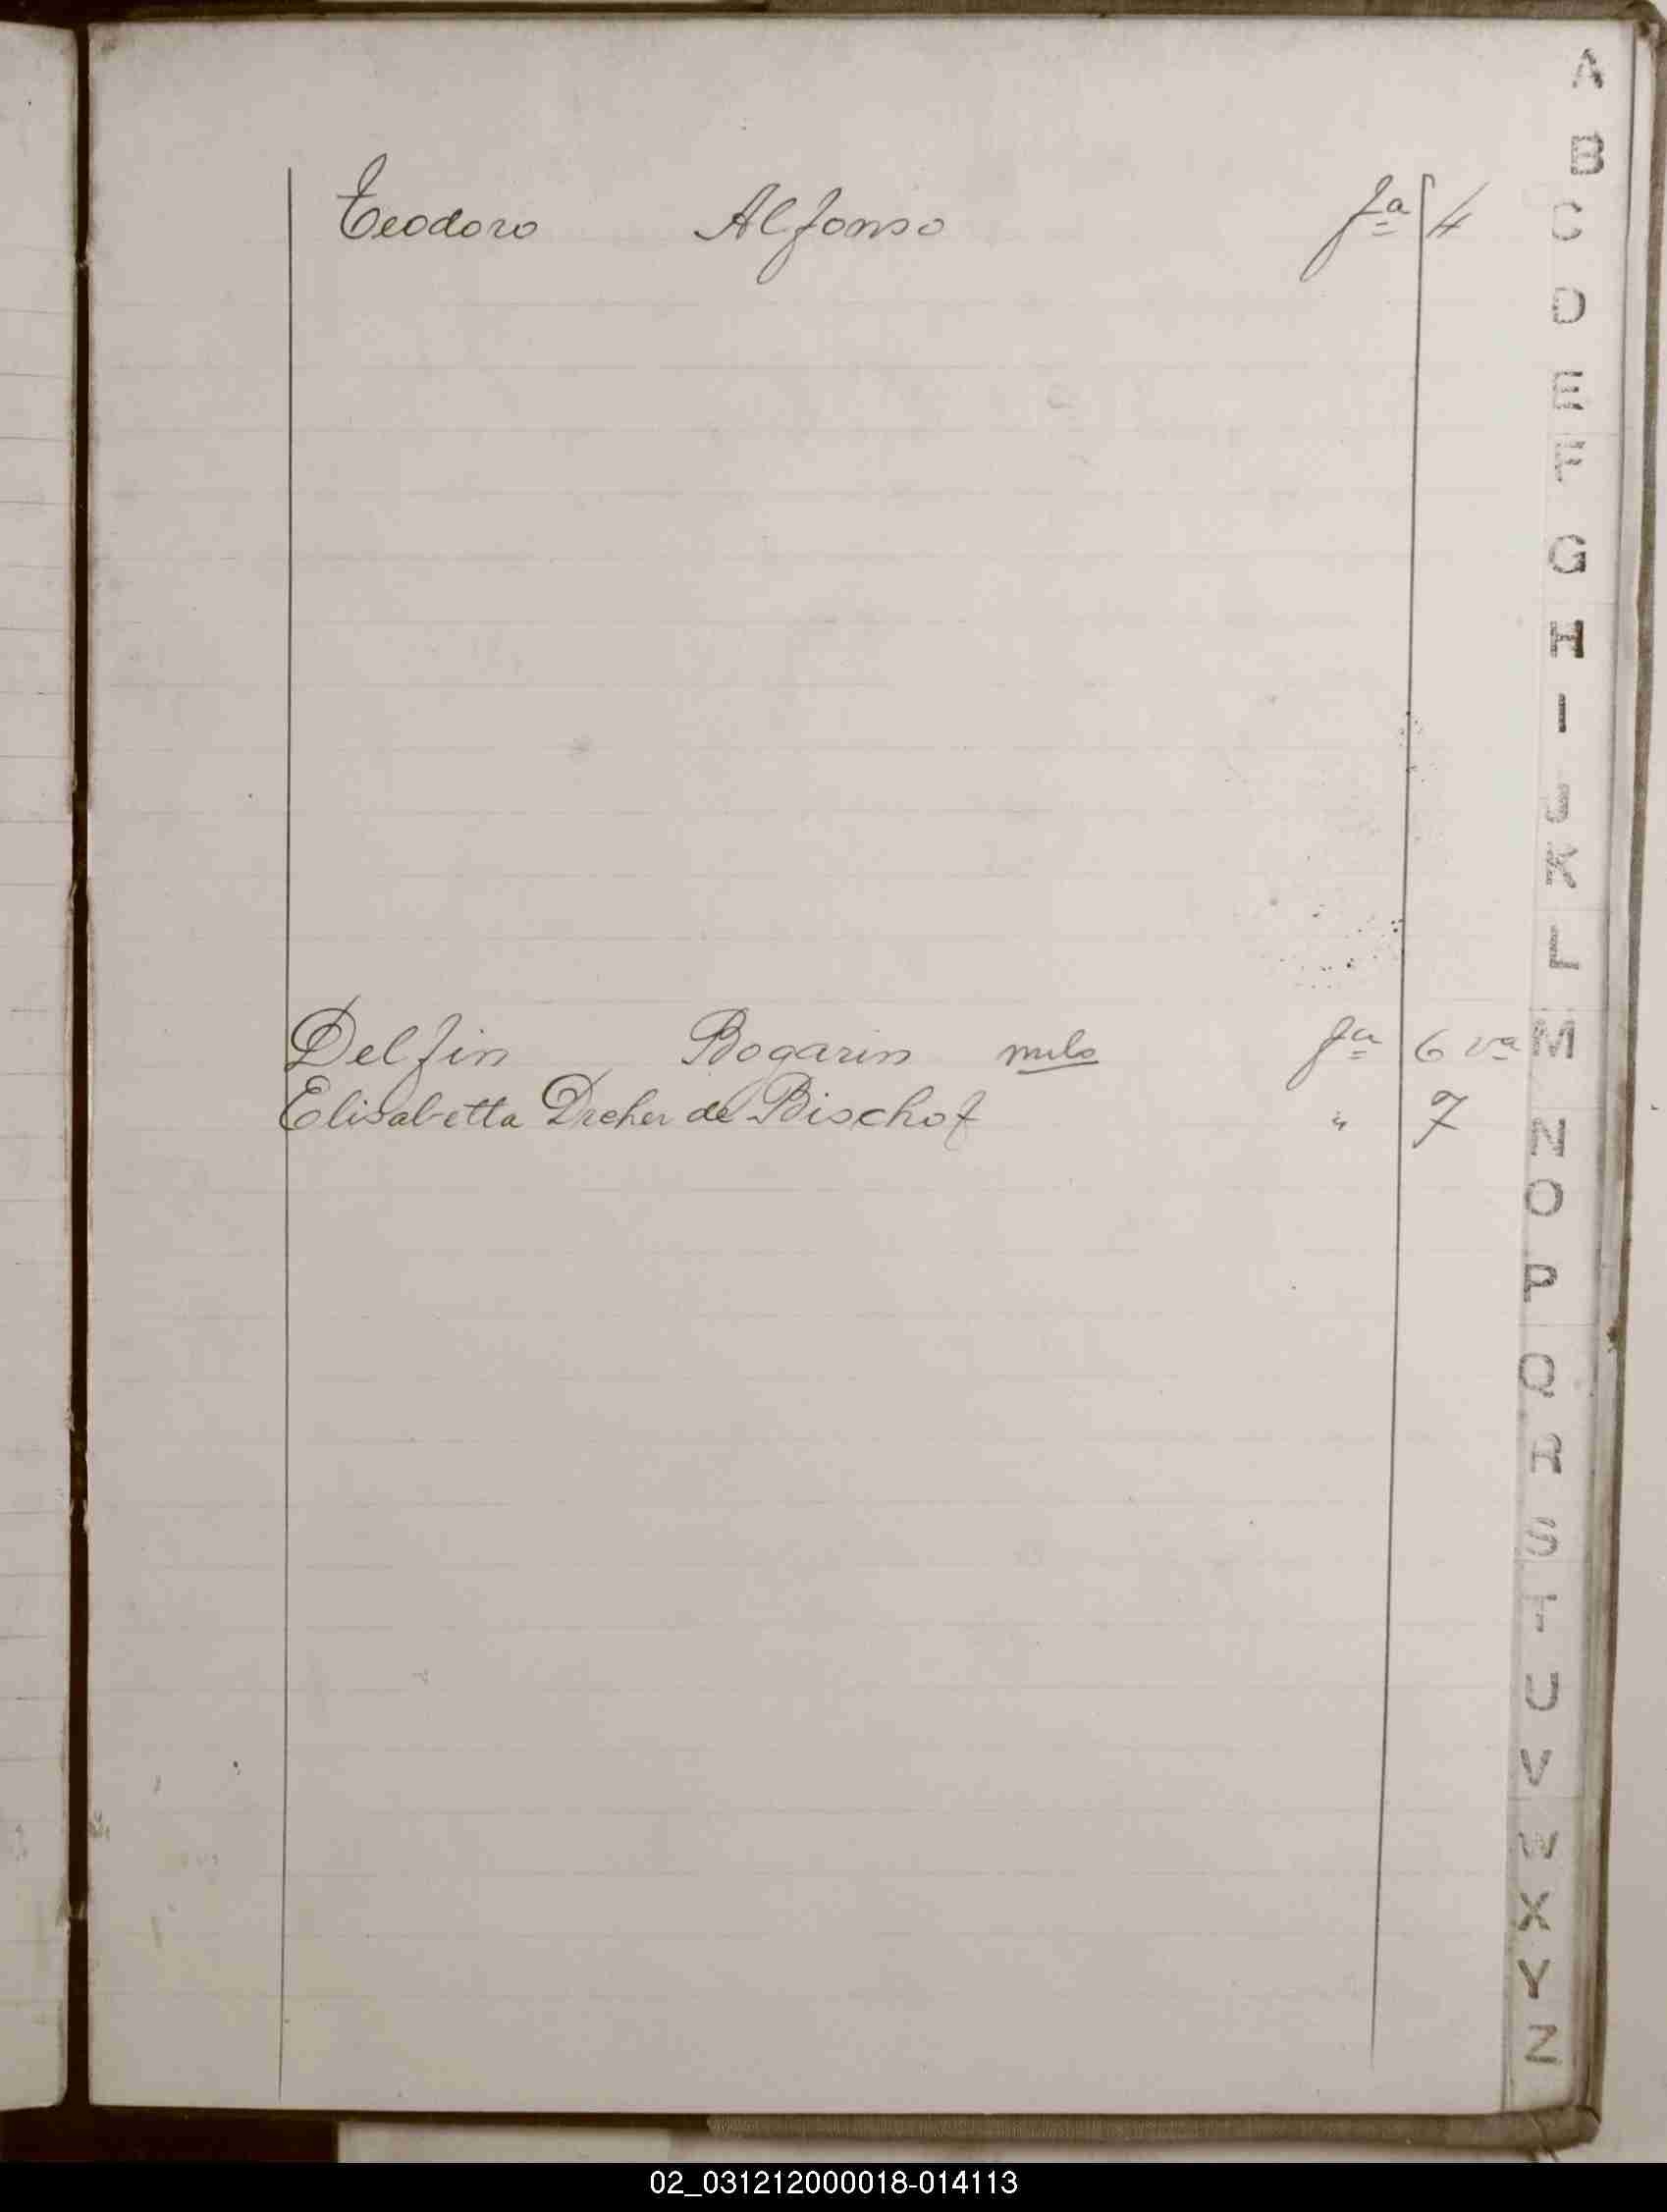 Teodoro Alfonso fª 4
Delfin Bogarin nulo fª 6 vª
Elisabetta Dreher de Bischof " 7
A
B
C
D
E
F
G
H
I
J
K
L
M
N
O
P
Q
R
S
T
U
V
W
X
Y
Z
02_031212000018-014113